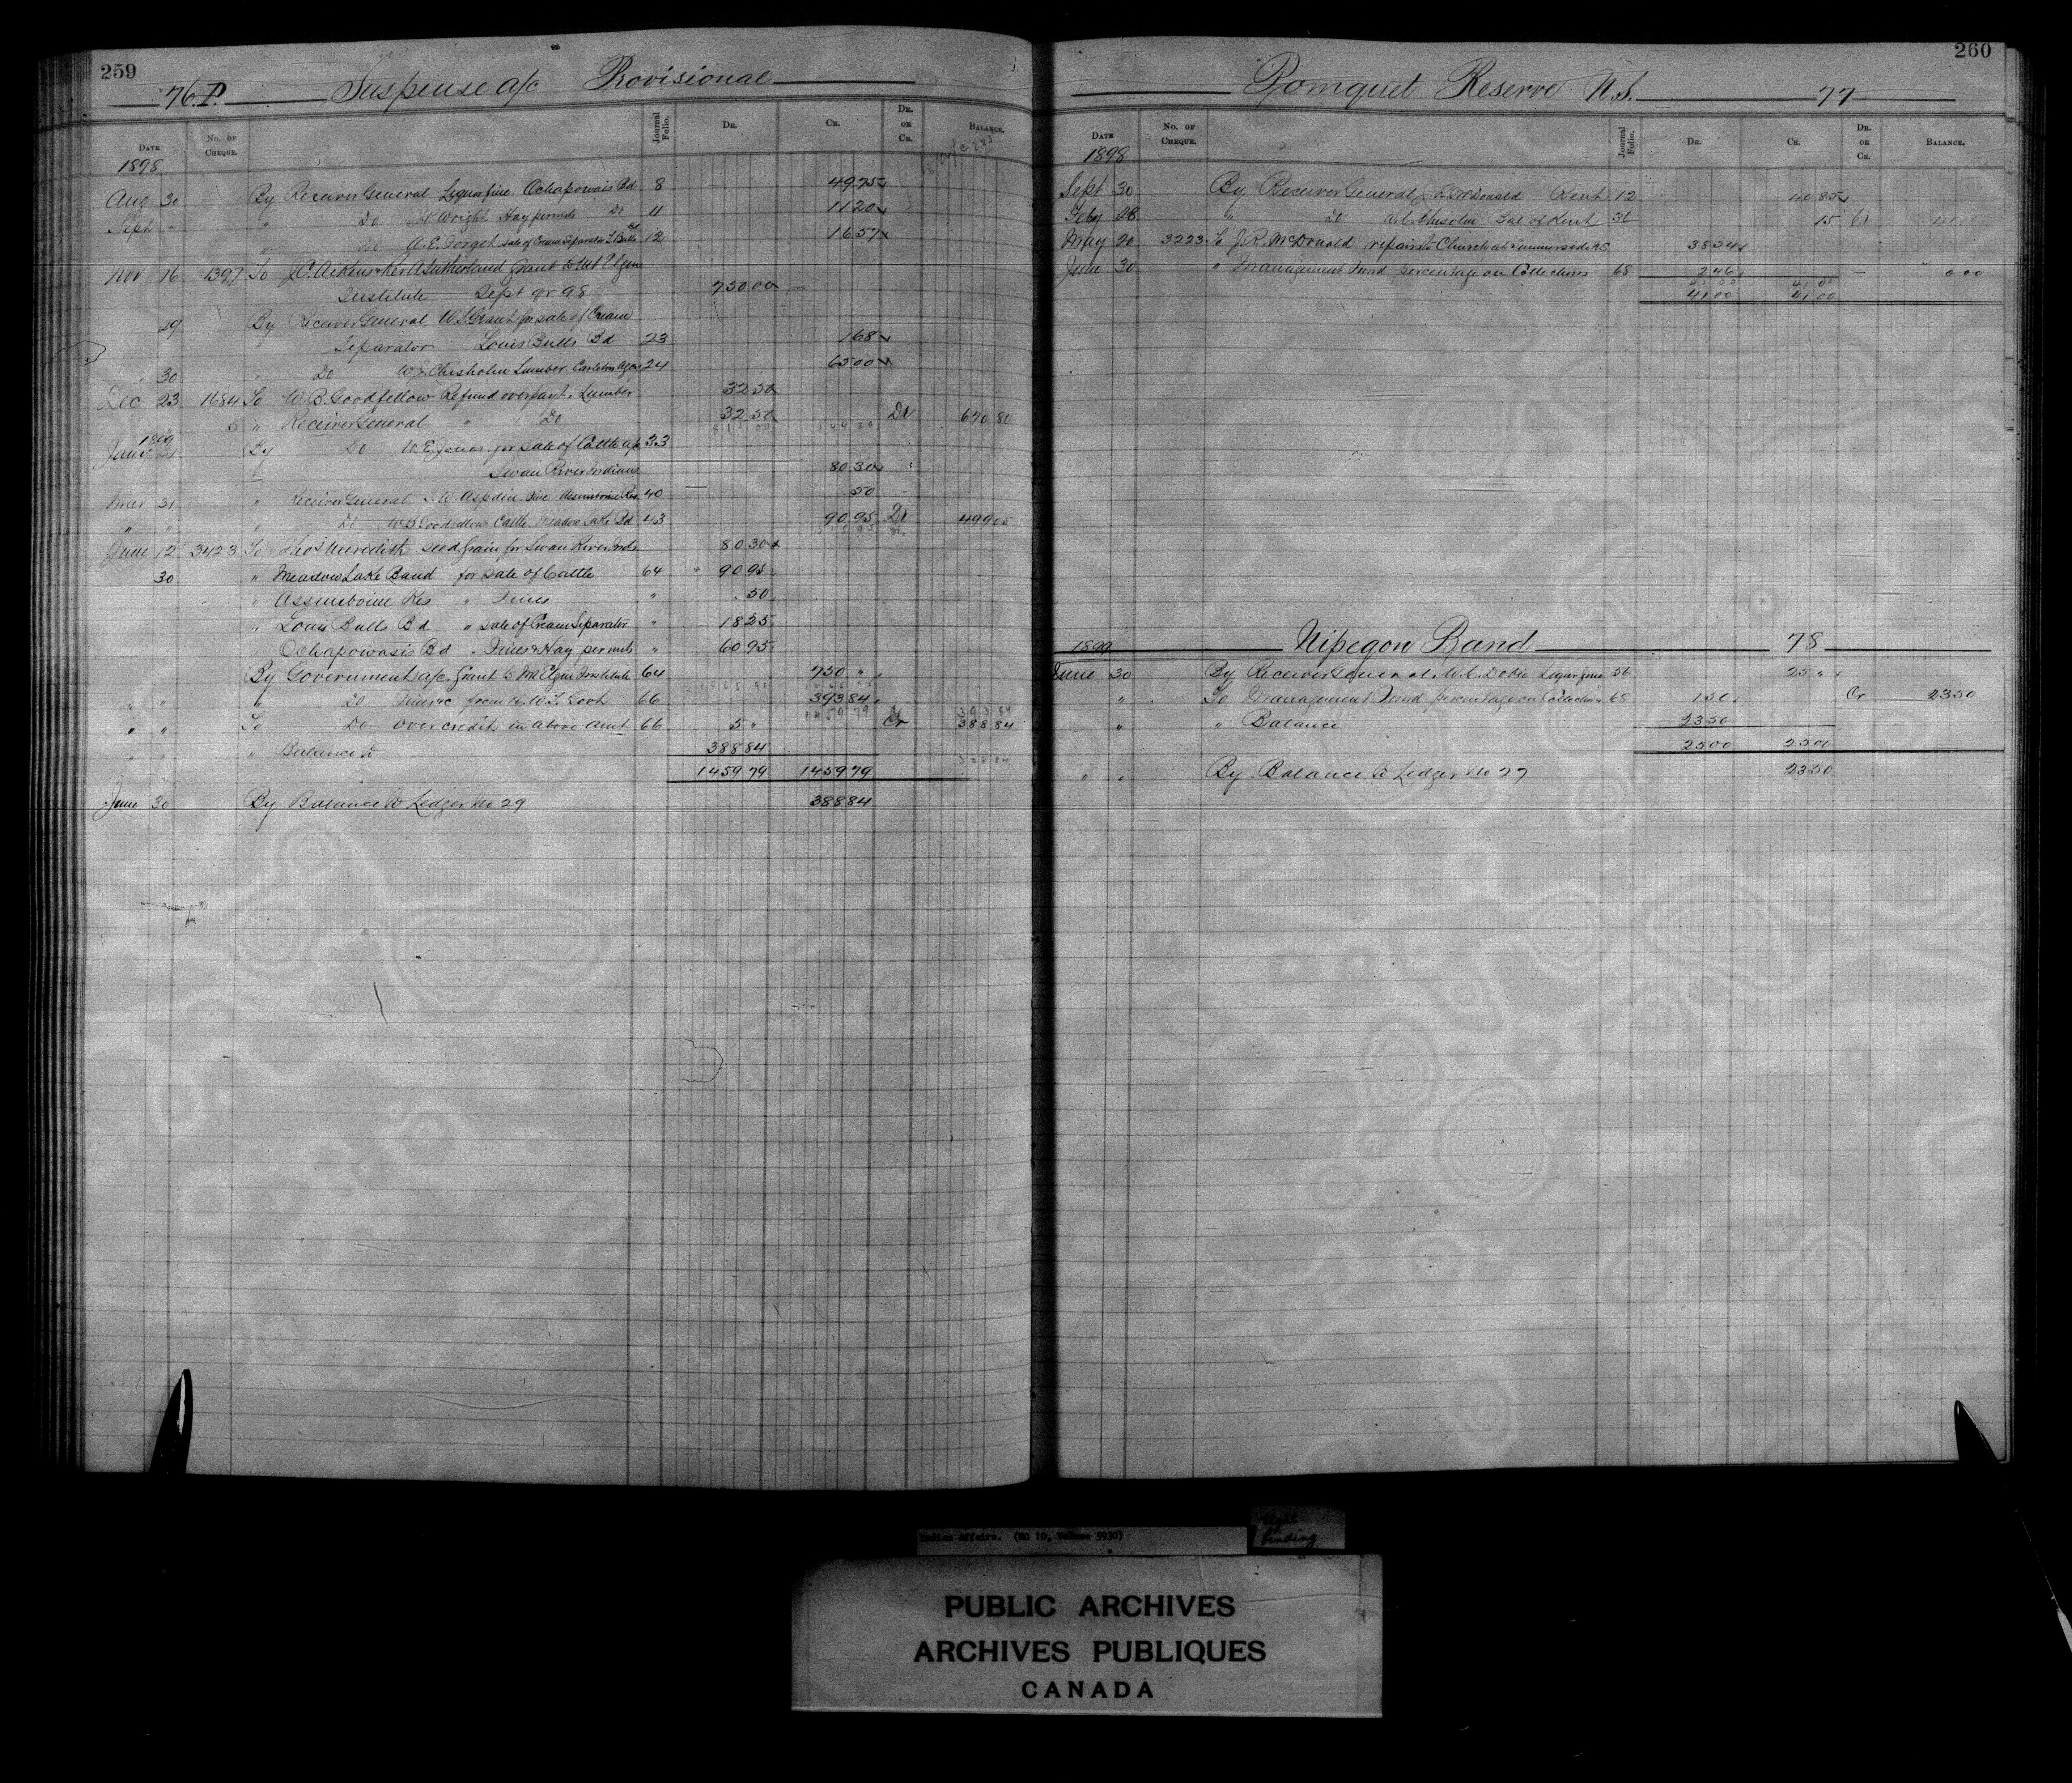 259
76.P. Suspense a/c Provisional
Date No. of Cheque. Journal Folio. Dr. Cr. Dr. or Cr. Balance.
1898
Aug 30 By Receiver General Liquor fine. Ochapowais Bd 8 49 75
Sept " " Do Wright Hay permits Do 11 11 20
" Do A. E. Forget sale of Cream Separator L. Bulls Bd 12 16 57
Nov 16 1397 To J. C. Aikins & Rev A Sutherland Grant to Mt Elgin
Institute Sept qr 98 750 00
29 By Receiver General W. S. Grant for sale of Cream
Separator Louis Bulls Bd 23 1 68
" 30 " Do W. E. Chisholm Lumber. Carleton Agcy 24 65 00
Dec 23 1684 To W. B. Goodfellow Refund overpayt. Lumber 32 50
5 " Receiver General " Do 32 50 Dr 670 80
815 00 144 20
1899
Jany 31 By Do W. E. Jones. for sale of Cattle a/c 33
Swan River Indians 80 30
Mar 31 " Receiver General T. W. Aspdin. Fine Assiniboine Res 40 50
" " " Do W. B Goodfellow Cattle. Meadow Lake Bd 43 90 95 Dr 499 05
315 95
June 12 3423 To Thos Meredith seed grain for Swan River Inds 80 30
30 " Meadow Lake Band for sale of Cattle 64 90 95
" Assiniboine Res " Fines " . 50
" Louis Bulls Bd " sale of Cream Separator " 18 25
" Ochapowasis Bd " Fines & Hay permits " 60 95
By Government a/c. Grant to Mt Elgin Institute 64 750 "
" " " Do Fines &c from N. W. T. Govt 66 393 84
1459 79 393 84
" " To Do over credit in above amt 66 5 " Cr 388 84
" " " Balance to 388 84
1459 79 1459 79
June 30 By Balance to Ledger No 29 388 84
260
Pomquet Reserve N.S. 77
Date No. of Cheque. Journal Folio. Dr. Cr. Dr. or Cr. Balance.
1898
Sept 30 By Receiver General J. R. McDonald Rent 12 40 85
Feby 28 " Do W. C. Chisolm Bal of Rent 36 15 Cr 41 00
May 20 3223 To J. R. McDonald repairs to Church at Summerside N.S. 38 54
June 30 " Management Fund percentage on Collections 68 2 46 — 0 00
41 00 41 00
41 00 41 00
1899 Nipegon Band 78
June 30 By Receiver General. W. C. Dobie Liquor fine 56 25 "
" To Management Fund percentage on Collections 68 1 50 Cr 23 50
" " Balance 23 50
25 00 25 00
" " By Balance to Ledger No 27 23 50
Indian Affairs. (RG 10, Volume 5930)
tight
binding
PUBLIC ARCHIVES
ARCHIVES PUBLIQUES
CANADA